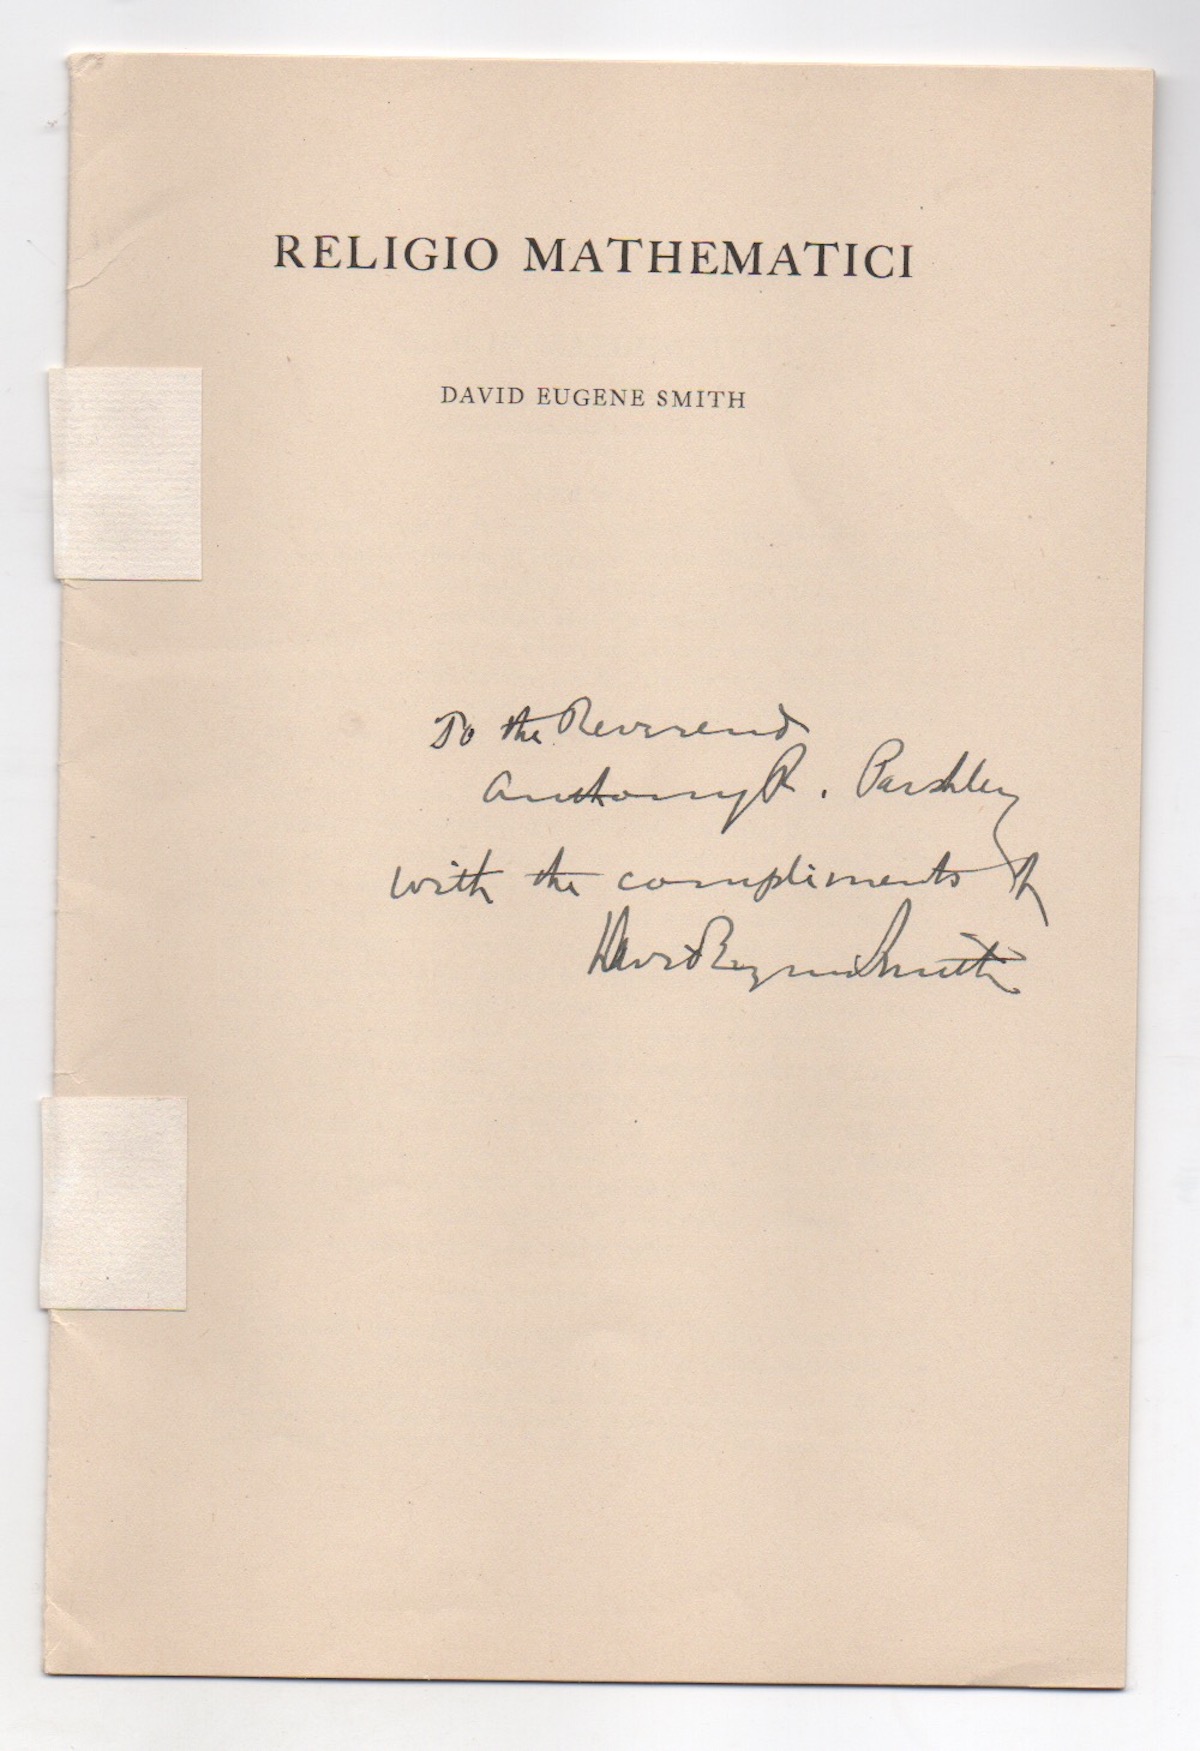 RELIGIO MATHEMATICI
DAVID EUGENE SMITH
To the Reverend
Anthony R. Parshley
with the compliments of
David Eugene Smith